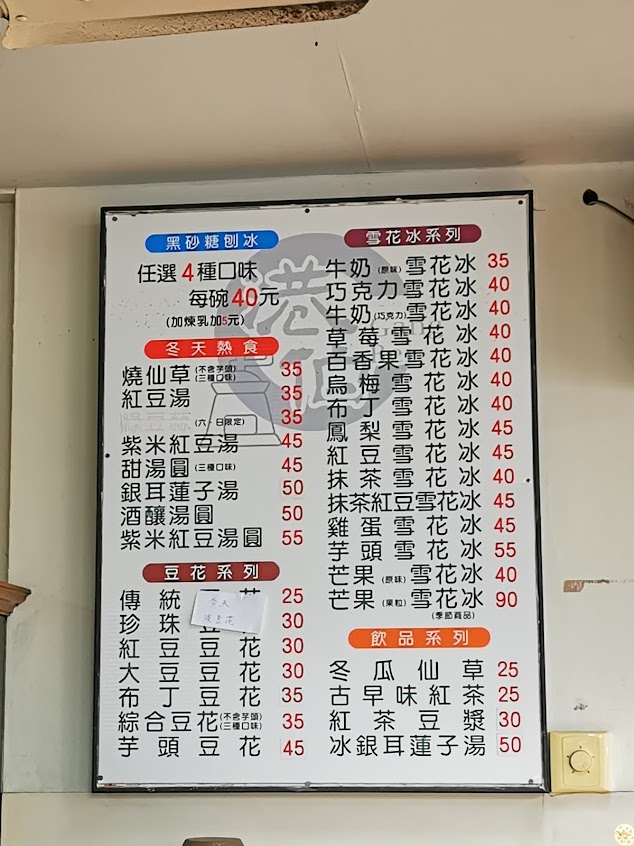 黑砂糖刨冰
任選4種口味
每碗40元
(加煉乳加5元)
冬天熱食
燒仙草(不含芋頭)(三種口味) 35
紅豆湯 35
(六、日限定) 35
紫米紅豆湯 45
甜湯圓(三種口味) 45
銀耳蓮子湯 50
酒釀湯圓 50
紫米紅豆湯圓 55
豆花系列
傳統豆花 25
珍珠豆花 30
紅豆豆花 30
大豆豆花 30
布丁豆花 35
綜合豆花(不含芋頭)(三種口味) 35
芋頭豆花 45
今天
豆花
雪花冰系列
牛奶(原味)雪花冰 35
巧克力雪花冰 40
牛奶(巧克力)雪花冰 40
草莓雪花冰 40
百香果雪花冰 40
烏梅雪花冰 40
布丁雪花冰 40
鳳梨雪花冰 45
紅豆雪花冰 45
抹茶雪花冰 40
抹茶紅豆雪花冰 45
雞蛋雪花冰 45
芋頭雪花冰 55
芒果(原味)雪花冰 40
芒果(果粒)雪花冰 90
(季節商品)
飲品系列
冬瓜仙草 25
古早味紅茶 25
紅茶豆漿 30
冰銀耳蓮子湯 50
港仙